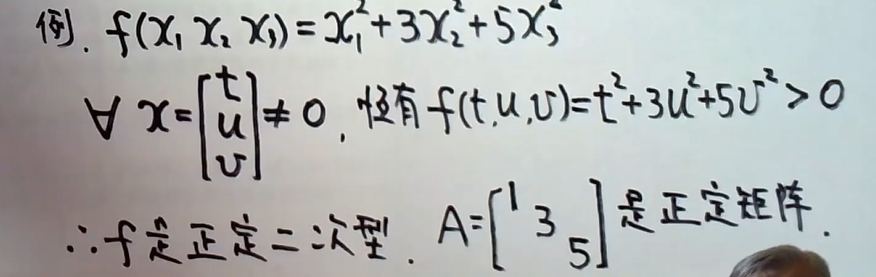 例. f(x₁ x₂ x₃)=x₁²+3x₂²+5x₃²
∀ x=[t u v]≠0, 恒有 f(t,u,v)=t²+3u²+5v²>0
∴f是正定二次型. A=[1 3 5]是正定矩阵.